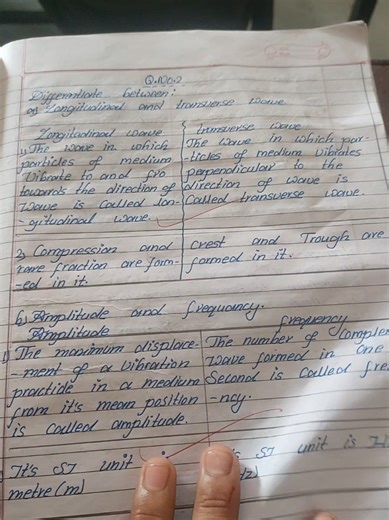 Q.No.2
Differentiate between:
a) Longitudinal and transverse wave
Longitudinal wave
1) The wave in which
particles of medium
vibrate to and fro
towards the direction of
wave is called lon-
-gitudinal wave.
transverse wave
The wave in which par-
-ticles of medium vibrates
perpendicular to the
direction of wave is
called transverse wave.
2) Compression and
rare fraction are form-
-ed in it.
Crest and Trough are
formed in it.
b) Amplitude and frequancy.
Amplitude
1) The maximum displace-
-ment of a vibration
practide in a medium
from it's mean position
is called amplitude.
frequency
The number of complet
wave formed in one
Second is called fre
-ncy.
It's SI unit
metre (m)
SI unit is H